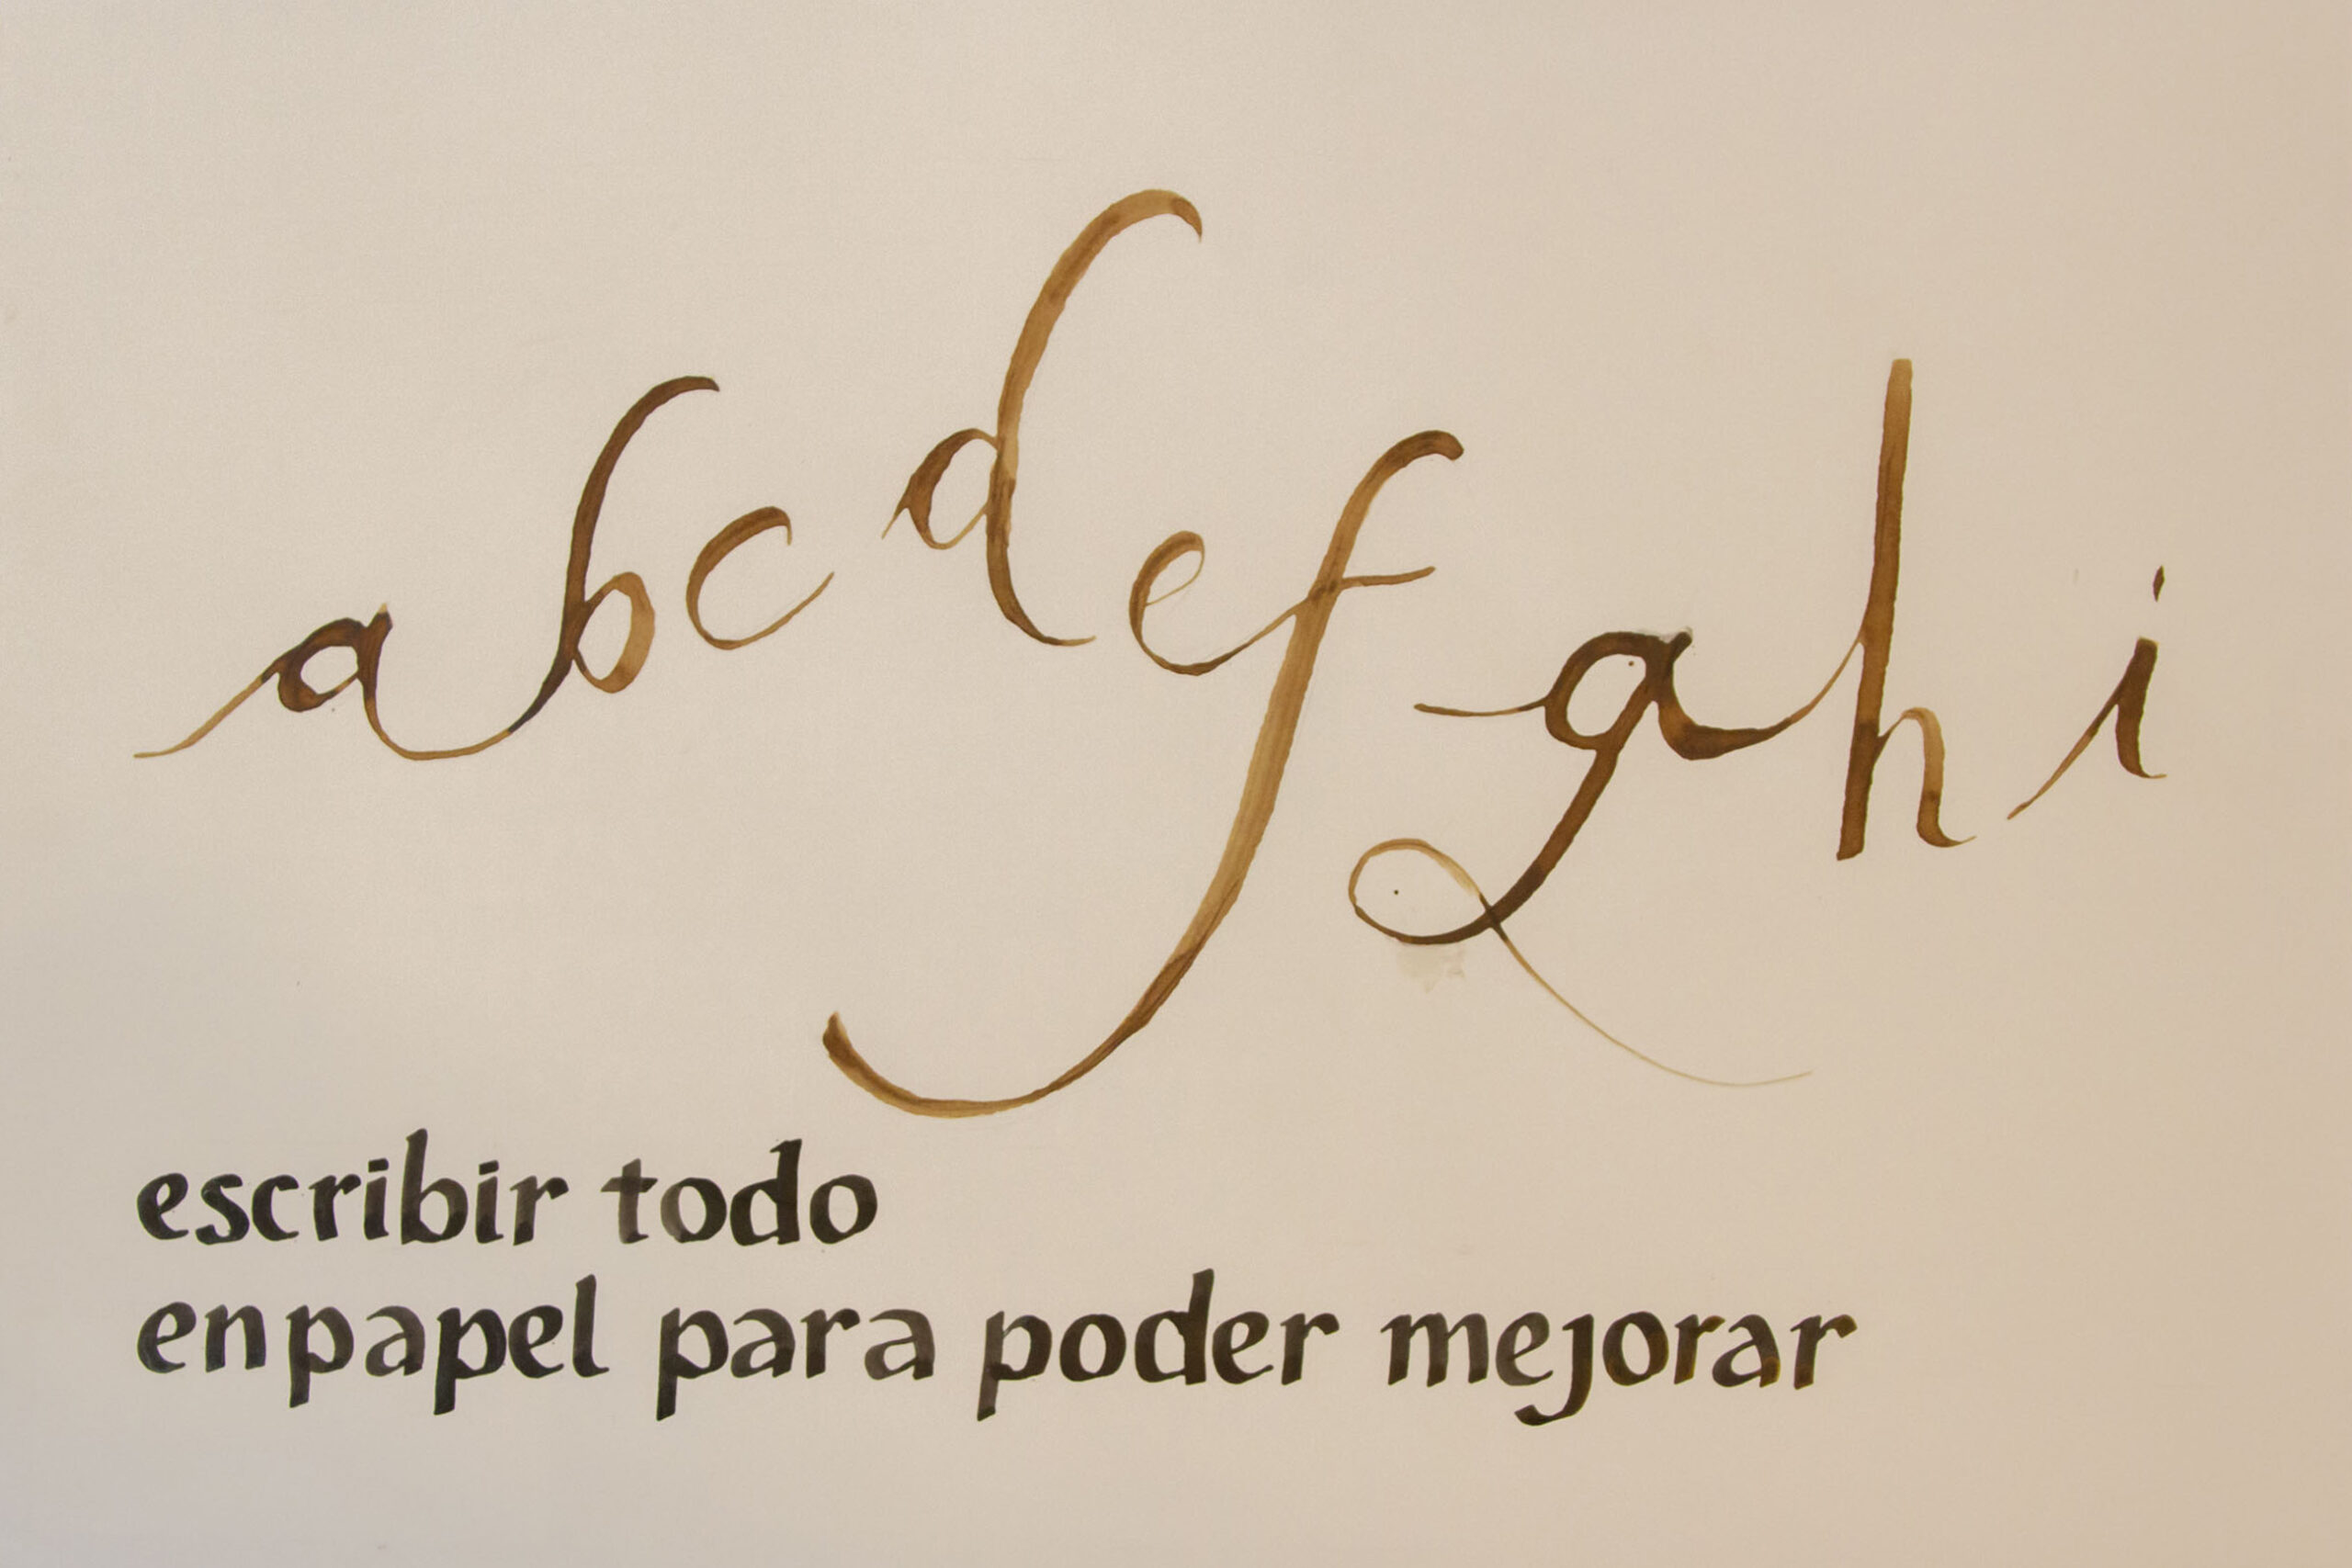 abcdefghi
escribir todo
en papel para poder mejorar